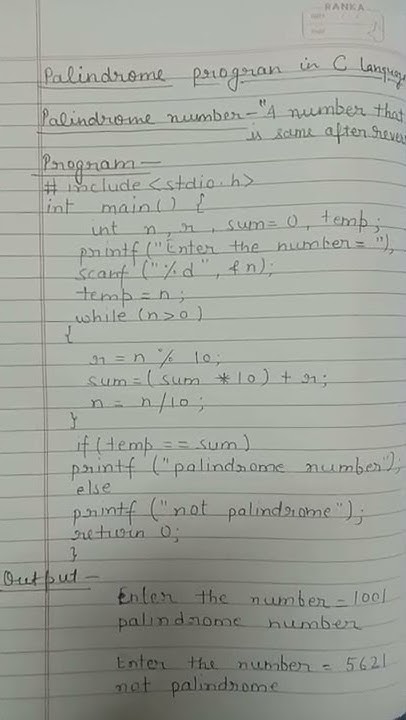 RANKA
Palindrome progran in C language
Palindrome number - "A number that
is same after rever
Program -
# include <stdio.h>
int main() {
int n, r, sum = 0, temp;
printf ("Enter the number = "),
scanf ("%d", &n);
temp = n;
while (n > 0)
{
r = n % 10;
sum = (sum * 10) + r;
n = n / 10;
}
if (temp == sum)
printf ("palindrome number");
else
printf ("not palindrome");
return 0;
}
Output -
Enter the number = 1001
palindrome number
Enter the number = 5621
not palindrome